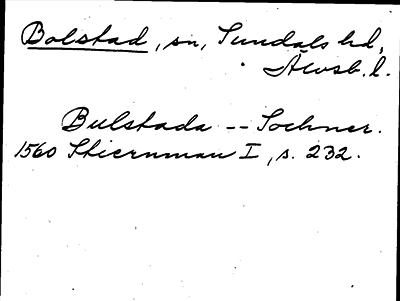 Bolstad, sn, Sundals hd,
Älvsb. l.
Bulstada -- Sochner.
1560 Stiernman I, s. 232.